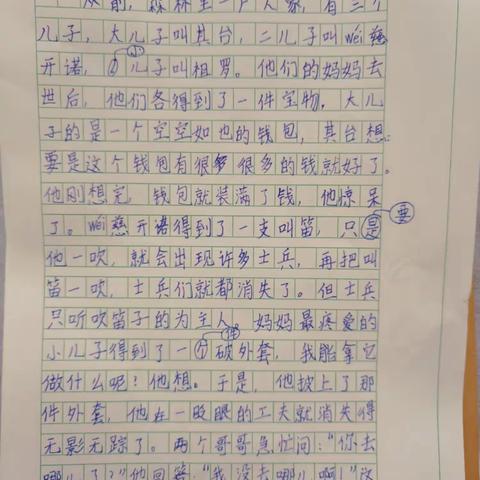 从前，森林里一户人家，有三个
儿子，大儿子叫其台，二儿子叫wēi慈
开诺，小儿子叫祖罗。他们的妈妈去
世后，他们各得到了一件宝物，大儿
子的是一个空空如也的钱包，其台想：
要是这个钱包有很多很多的钱就好了。
他刚想完，钱包就装满了钱，他惊呆
了。wēi慈开诺得到了一支叫笛，只要
他一吹，就会出现许多士兵，再把叫
笛一吹，士兵们就都消失了。但士兵
只听吹笛子的为主人。妈妈最疼爱的
小儿子得到了一件破外套，我能拿它
做什么呢？他想。于是，他披上了那
件外套，他在一眨眼的工夫就消失得
无影无踪了。两个哥哥急忙问：“你去
哪儿了？”他回答：“我没去哪儿啊！”这